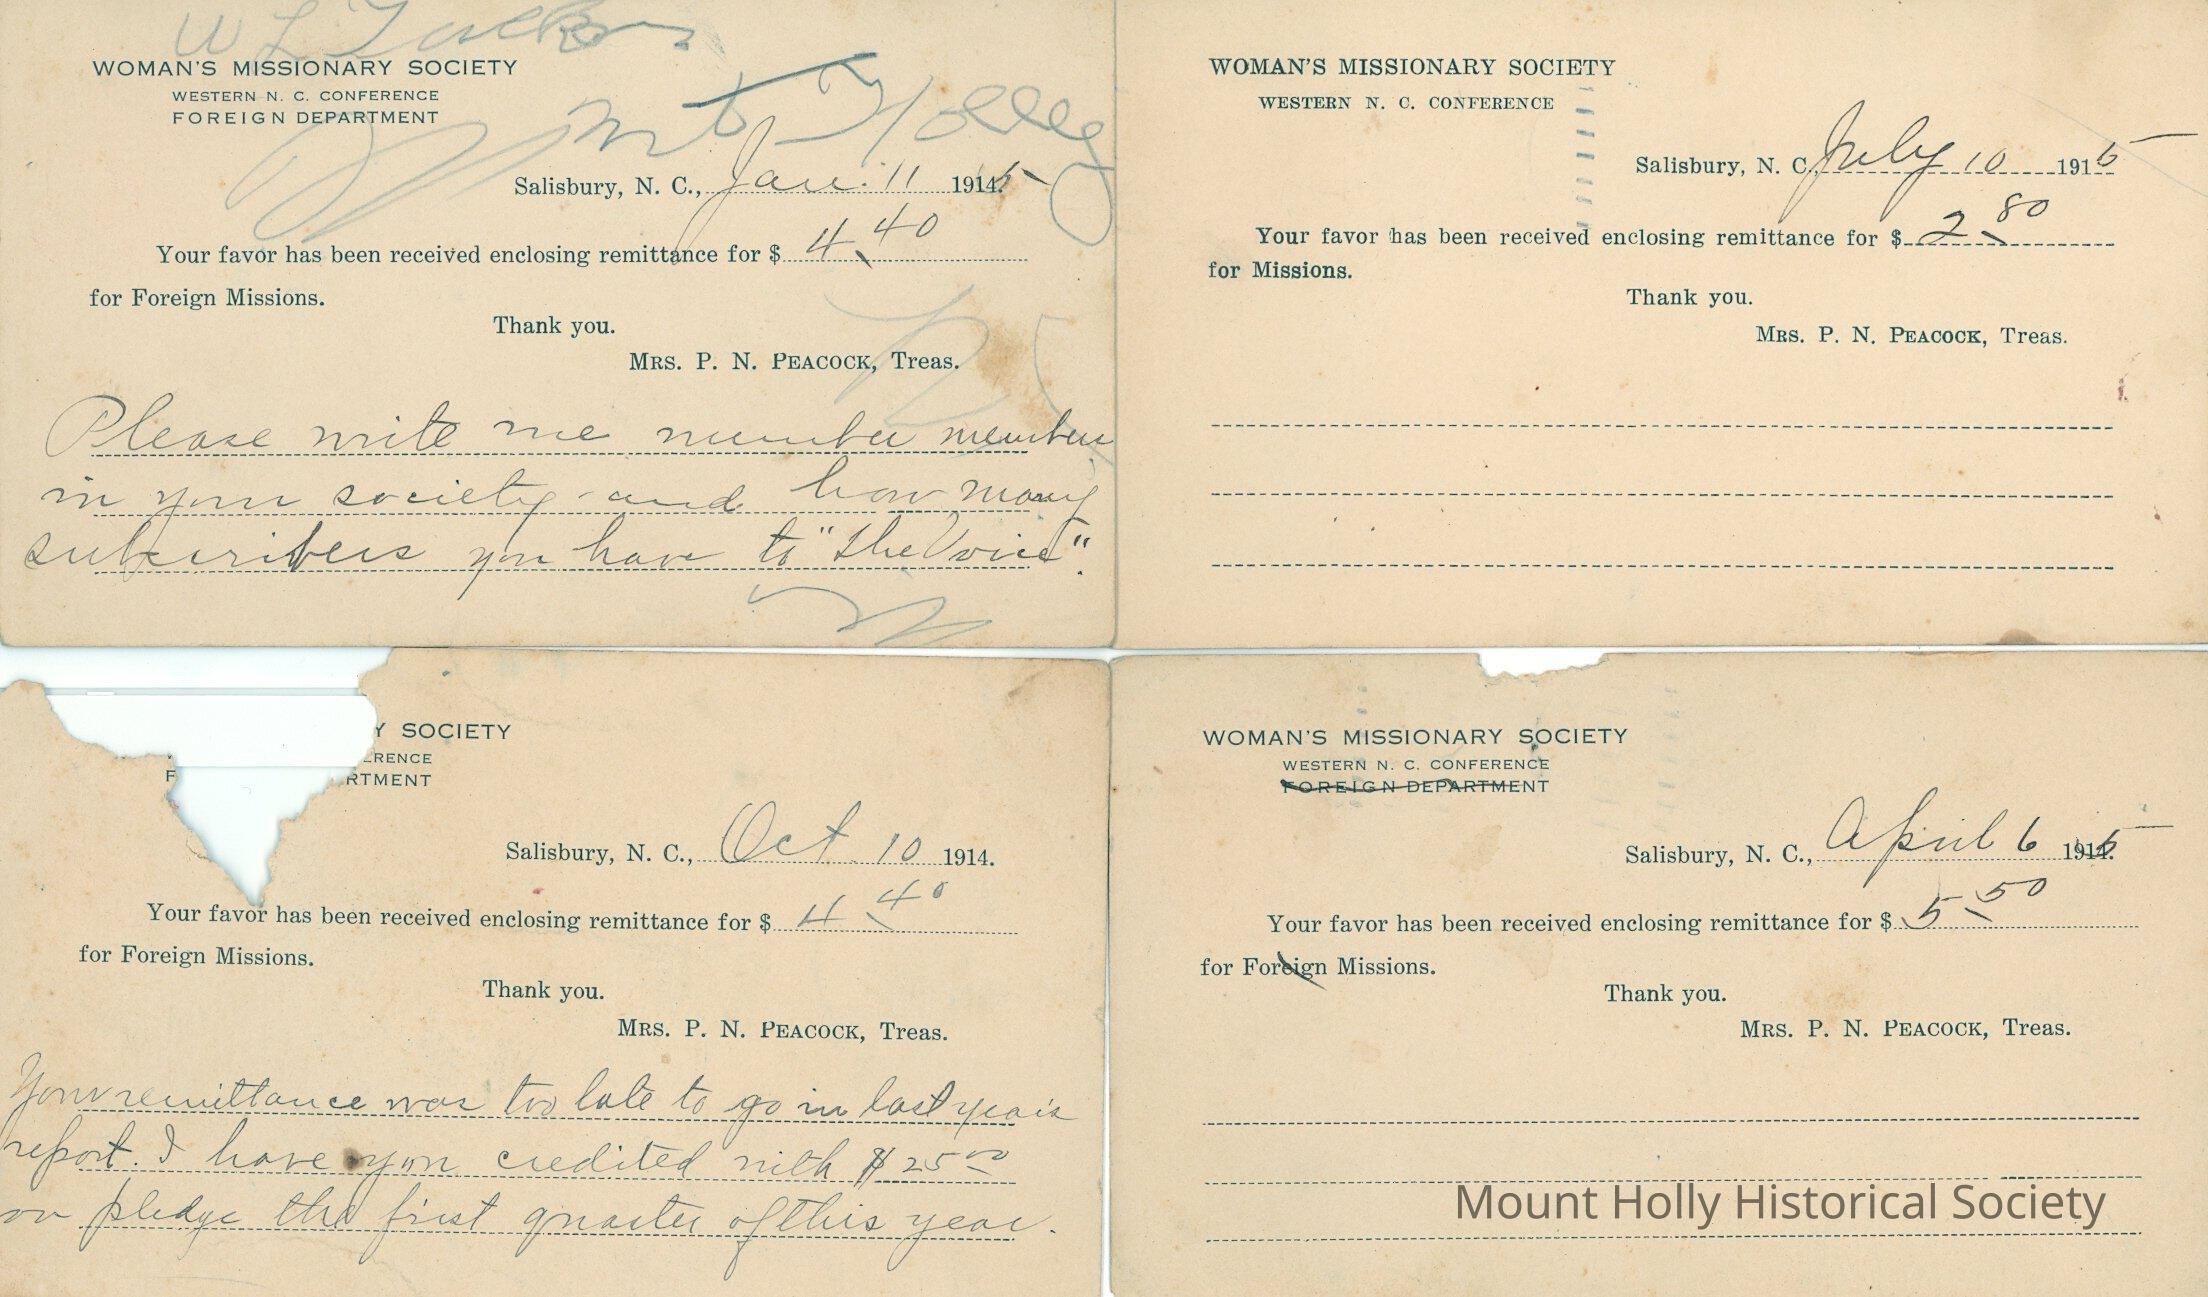 W L
WOMAN'S MISSIONARY SOCIETY
WESTERN N. C. CONFERENCE
FOREIGN DEPARTMENT
Mt Holly
Salisbury, N. C., Jan. 11 1914. 5
Your favor has been received enclosing remittance for $ 4.40
for Foreign Missions.
Thank you.
MRS. P. N. PEACOCK, Treas.
Please write me number members
in your society and how many
subscribers you have to "The Voice".
WOMAN'S MISSIONARY SOCIETY
WESTERN N. C. CONFERENCE
Salisbury, N. C., July 10 1915
Your favor has been received enclosing remittance for $ 2.80
for Missions.
Thank you.
MRS. P. N. PEACOCK, Treas.
Y SOCIETY
ERENCE
F RTMENT
Salisbury, N. C., Oct. 10 1914.
Your favor has been received enclosing remittance for $ 4.40
for Foreign Missions.
Thank you.
MRS. P. N. PEACOCK, Treas.
Your remittance was too late to go in last year's
report. I have you credited with $25.00
on pledge the first quarter of this year.
WOMAN'S MISSIONARY SOCIETY
WESTERN N. C. CONFERENCE
FOREIGN DEPARTMENT
Salisbury, N. C., April 6 1914. 5
Your favor has been received enclosing remittance for $ 5.50
for Foreign Missions.
Thank you.
MRS. P. N. PEACOCK, Treas.
Mount Holly Historical Society